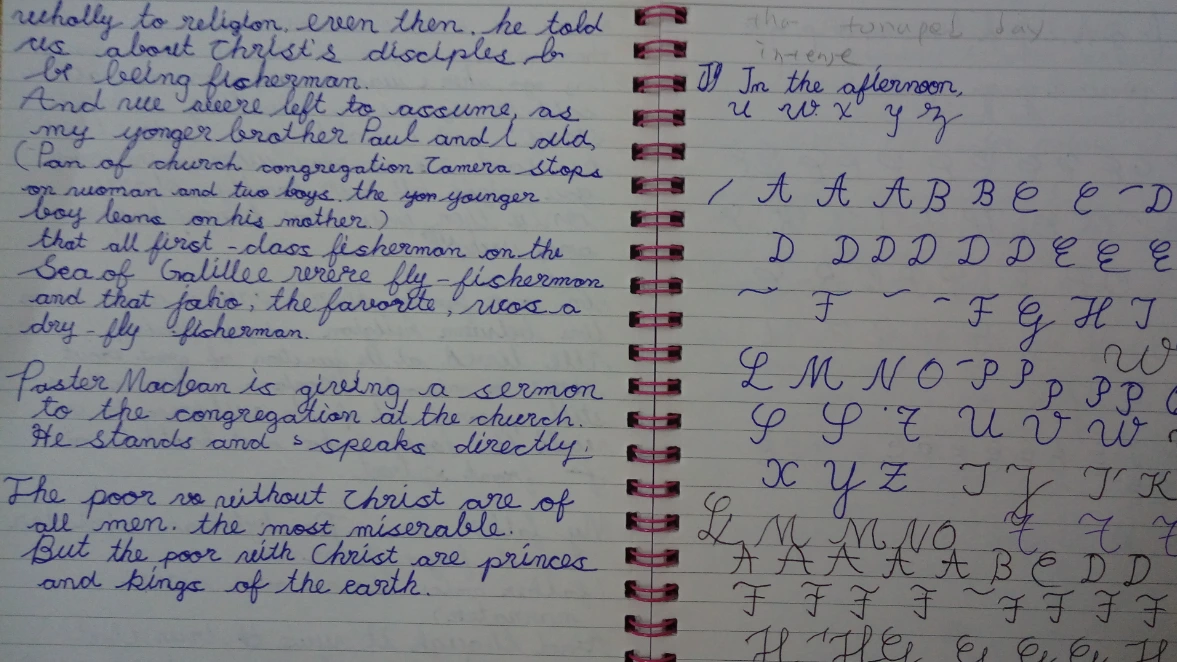 wholly to religion, even then, he told
us about Christ's disciples b
be being fisherman.
And we were left to assume, as
my yonger brother Paul and I did,
(Pan of church congregation Camera stops
on woman and two boys. the yon younger
boy leans on his mother.)
that all first-class fisherman on the
Sea of Galillee were fly-fisherman
and that johio; the favorite, was a
dry-fly fisherman.
Paster Maclean is giveing a sermon
to the congregation at the church.
He stands and s speaks directly.
The poor without Christ are of
all men. the most miserable.
But the poor with Christ are princes
and kings of the earth.
day
intense
In the afternoon,
u w x y z
A A A B B C C D
D D D D D D E E E
F F G H I
W
L M N O P P P P P
S S Z U V W
X Y Z I J I K
L M M N O Z Z Z
A A A A A B C D D
F F F F F F F F
H H G G G G H